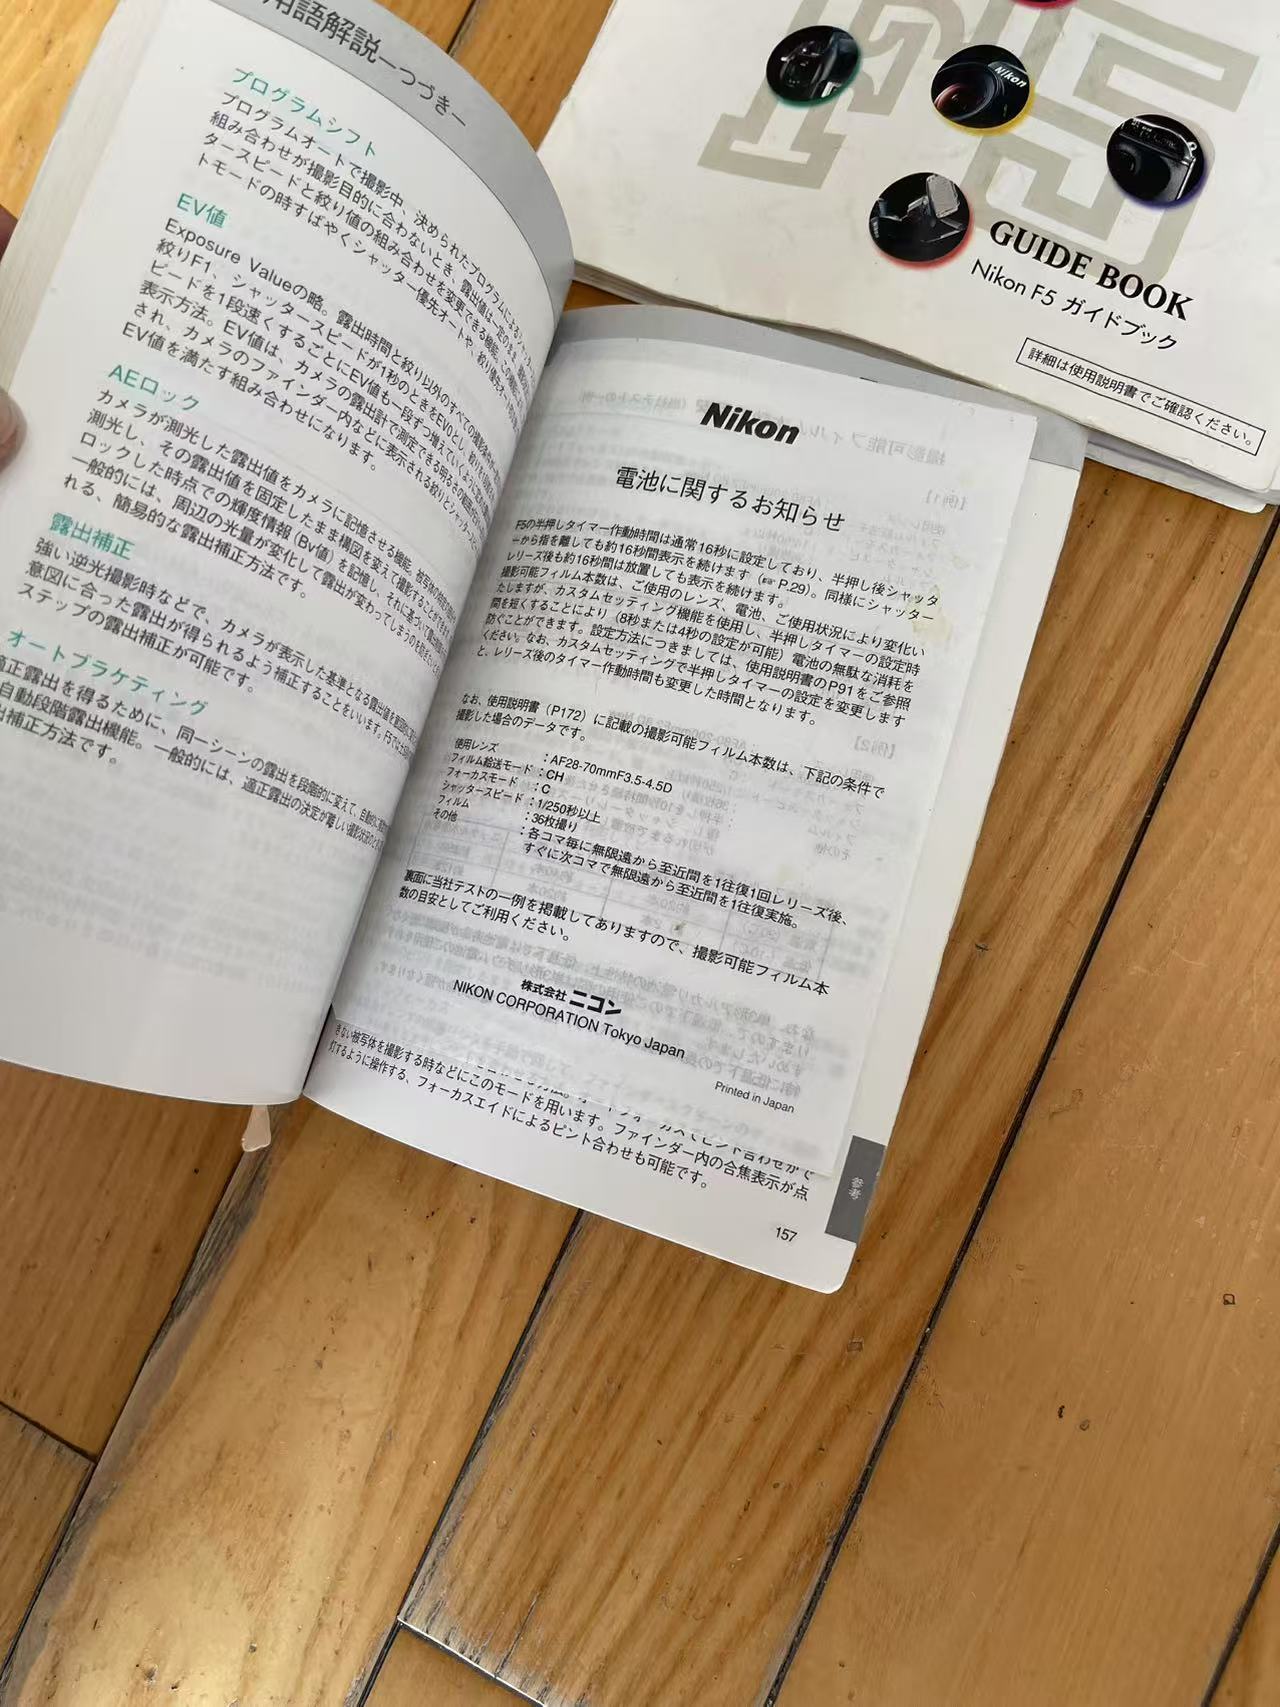 用語解説—つづき—
プログラムシフト
プログラムオートで撮影中、決められたプログラムによるシャッ
組み合わせが撮影目的に合わないとき、露出値は一定のまま、
タースピードと絞り値の組み合わせを変更できる機能。この
トモードの時すばやくシャッター優先オートや、絞り優先オート
EV値
Exposure Valueの略。露出時間と絞り以外のすべての撮影条件が
絞りF1、シャッタースピードが1秒のときをEV0とし、絞りを1段
ピードを1段速くするごとにEV値も一段ずつ増えていくように
表示方法。EV値は、カメラの露出計で測定できる明るさの範囲
され、カメラのファインダー内などに表示される絞りとシャッター
EV値を満たす組み合わせになります。
AEロック
カメラが測光した露出値をカメラに記憶させる機能。被写体の
測光し、その露出値を固定したまま構図を変えて撮影すること
ロックした時点での輝度情報(Bv値)を記憶し、それに基づいて
一般的には、周辺の光量が変化して露出が変わってしまうのを
れる、簡易的な露出補正方法です。
露出補正
強い逆光撮影時などで、カメラが表示した基準となる露出値を
意図に合った露出が得られるよう補正することをいいます。F5では
ステップの露出補正が可能です。
オートブラケティング
適正露出を得るために、同一シーンの露出を段階的に変えて、自動的に
自動段階露出機能。一般的には、適正露出の決定が難しい撮影状況の
出補正方法です。
Nikon
GUIDE BOOK
Nikon F5 ガイドブック
詳細は使用説明書でご確認ください。
Nikon
電池に関するお知らせ
F5の半押しタイマー作動時間は通常16秒に設定しており、半押し後シャッタ
ーから指を離しても約16秒間表示を続けます(☞P.29)。同様にシャッター
レリーズ後も約16秒間は放置しても表示を続けます。
撮影可能フィルム本数は、ご使用のレンズ、電池、ご使用状況により変化い
たしますが、カスタムセッティング機能を使用し、半押しタイマーの設定時
間を短くすることにより(8秒または4秒の設定が可能)電池の無駄な消耗を
防ぐことができます。設定方法につきましては、使用説明書のP91をご参照
ください。なお、カスタムセッティングで半押しタイマーの設定を変更します
と、レリーズ後のタイマー作動時間も変更した時間となります。
なお、使用説明書(P172)に記載の撮影可能フィルム本数は、下記の条件で
撮影した場合のデータです。
使用レンズ：AF28-70mmF3.5-4.5D
フィルム給送モード：CH
フォーカスモード：C
シャッタースピード：1/250秒以上
フィルム：36枚撮り
その他：各コマ毎に無限遠から至近間を1往復1回レリーズ後、
すぐに次コマで無限遠から至近間を1往復実施。
裏面に当社テストの一例を掲載してありますので、撮影可能フィルム本
数の目安としてご利用ください。
株式会社 ニコン
NIKON CORPORATION Tokyo Japan
Printed in Japan
きない被写体を撮影する時などにこのモードを用います。ファインダー内の合焦表示が点
灯するように操作する、フォーカスエイドによるピント合わせも可能です。
参考
157